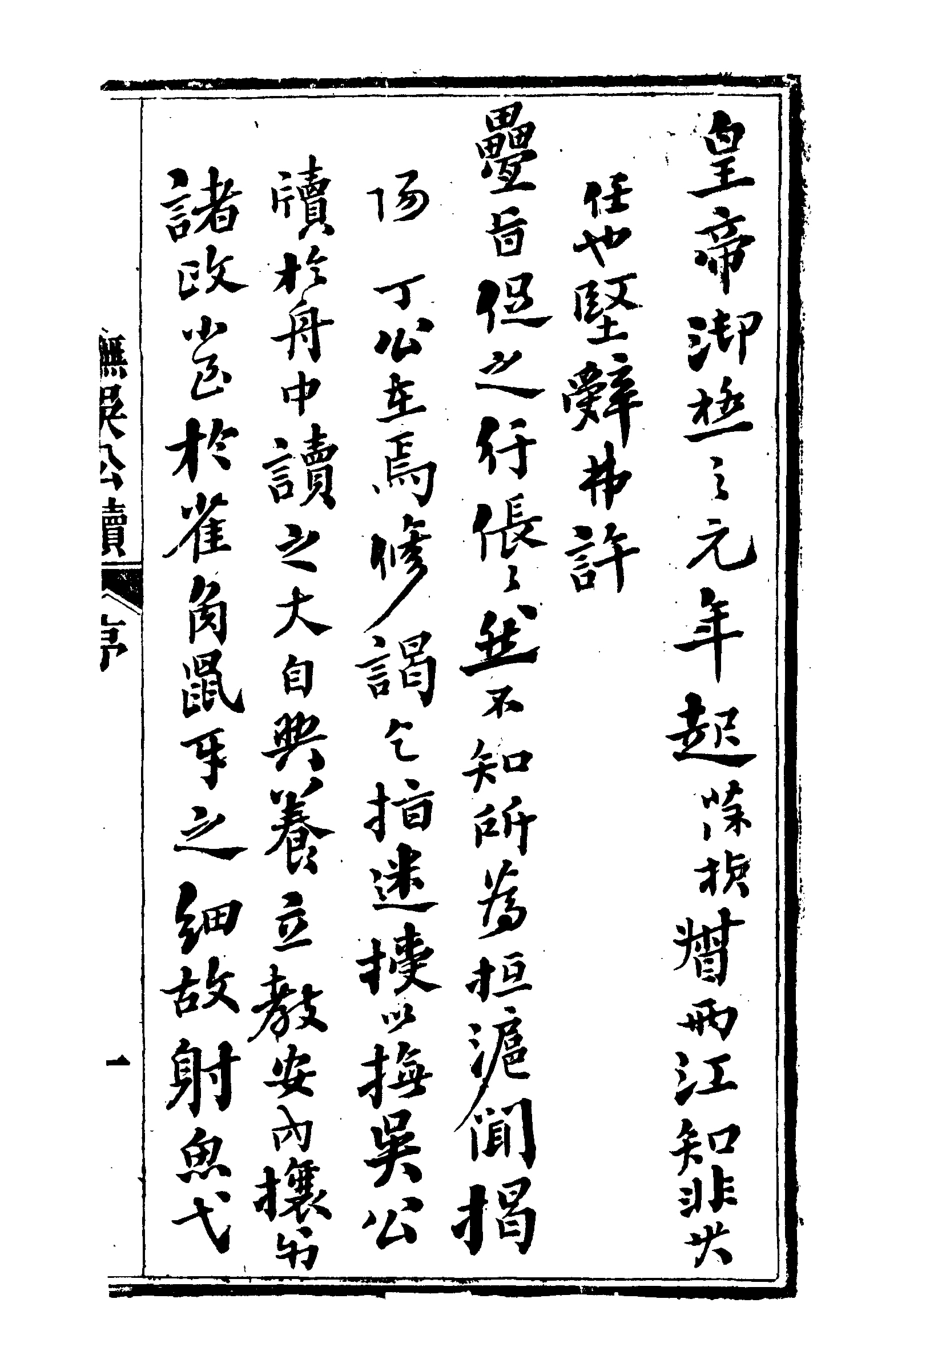 皇帝御極之元年起葆楨督兩江知非其
任也堅辭弗許
疊旨促之行倀倀然不知所為抵滬聞揭
陽 丁公在焉修謁乞指迷授以撫吳公
牘於舟中讀之大自興養立教安內攘外
諸政小至於雀角鼠牙之細故射魚弋
撫吳公牘
序
一